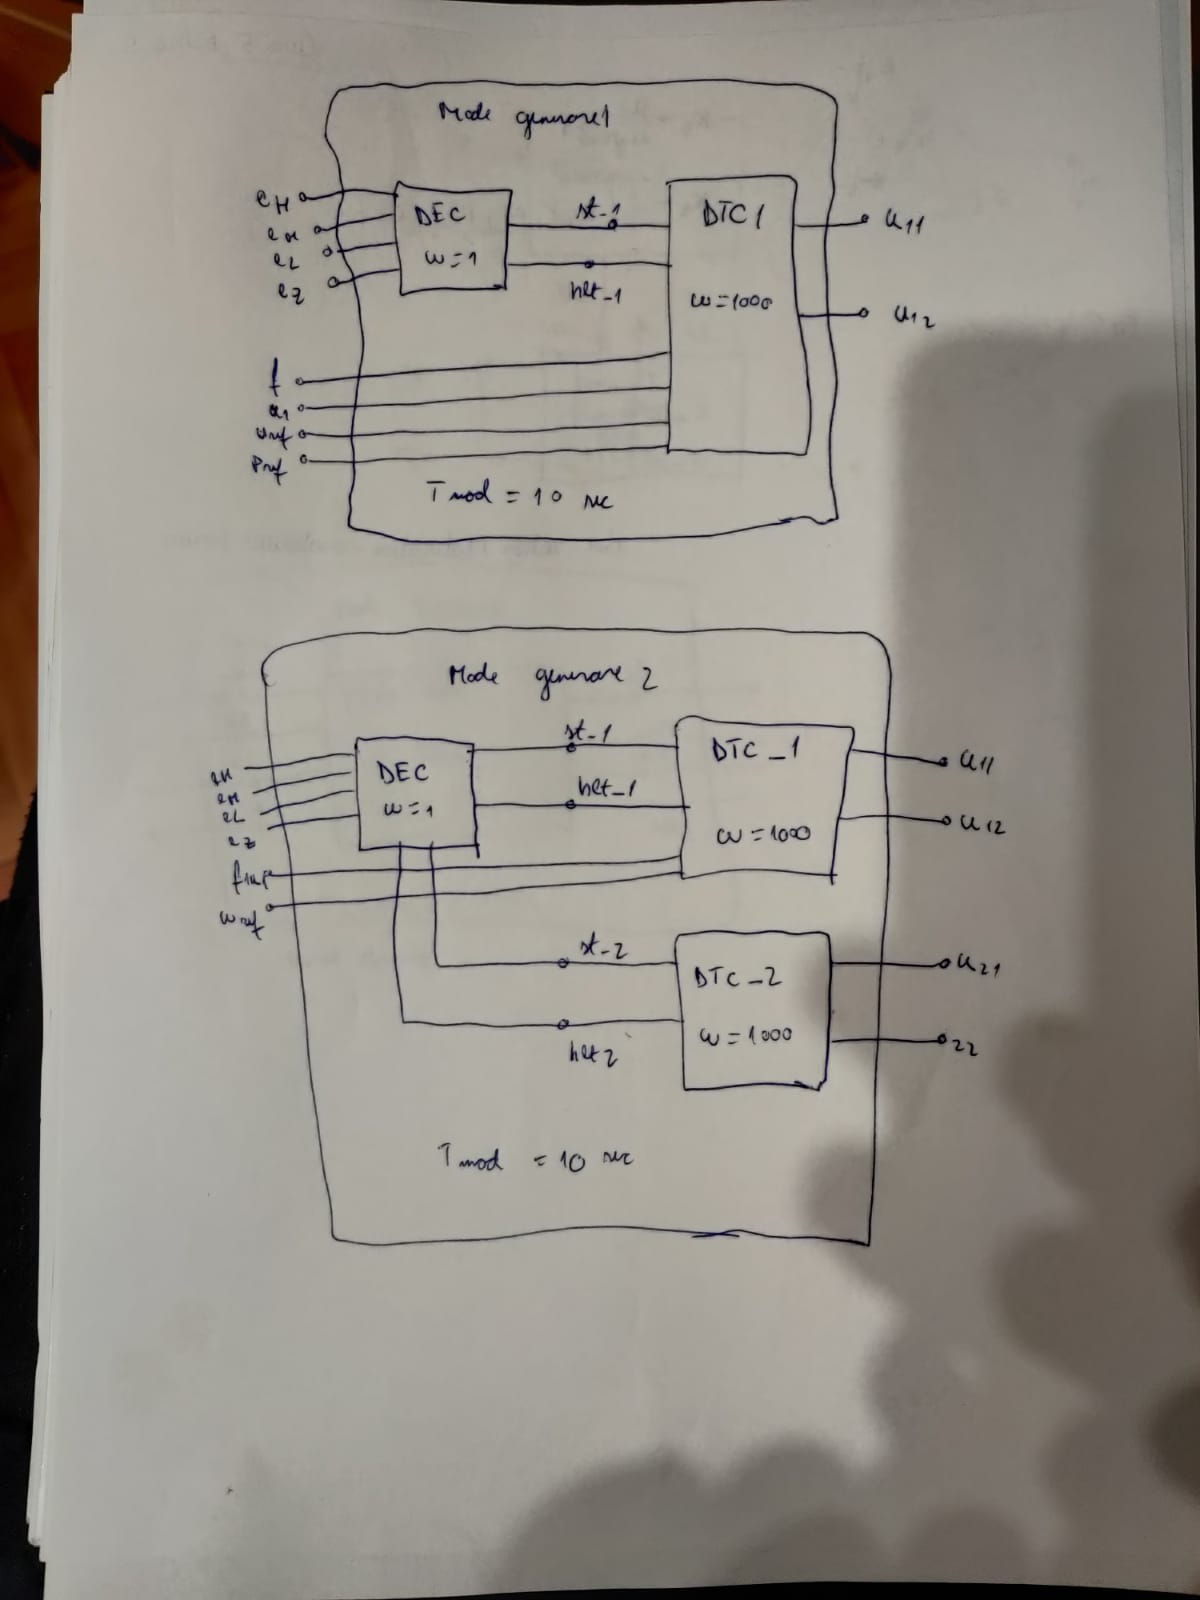 Mode generare1
eH
eM
eL
eZ
DEC
w=1
st-1
hlt-1
DTC1
w=1000
u11
u12
f
u1
wref
Pref
Tmod = 10 sec
Mode generare 2
eH
eM
eL
eZ
DEC
w=1
st-1
hlt-1
DTC_1
w=1000
u11
u12
wref
st-2
hlt2
DTC_2
w=1000
u21
22
Tmod = 10 sec